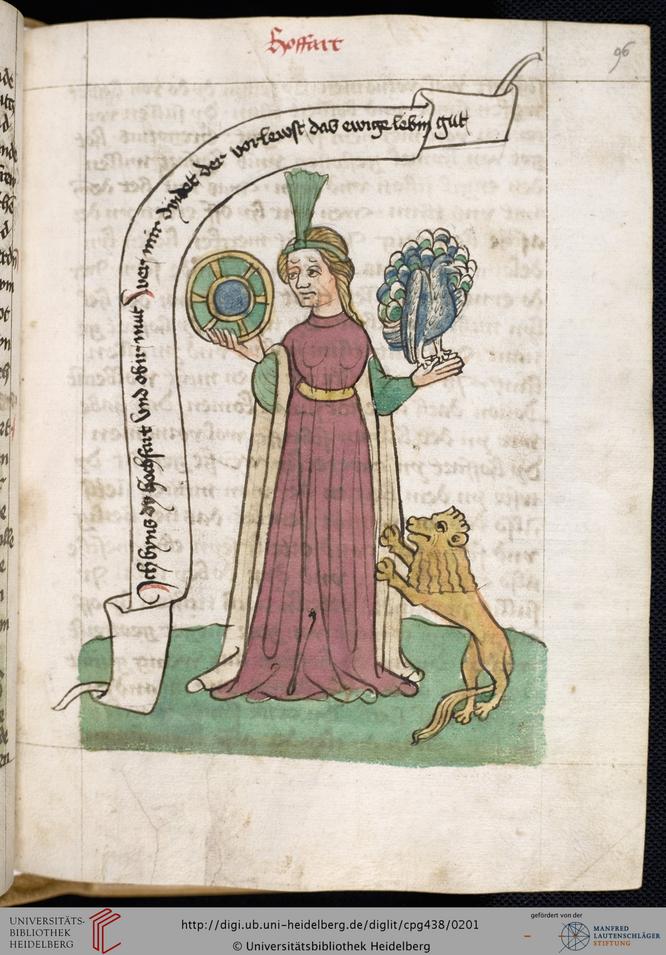 Hoffart
96
Ich byns dy hochfart vnd obirmut Wer mir dinet der vorlewst das ewige lebin gut
UNIVERSITÄTS-
BIBLIOTHEK
HEIDELBERG
http://digi.ub.uni-heidelberg.de/diglit/cpg438/0201
© Universitätsbibliothek Heidelberg
gefördert von der
MANFRED
LAUTENSCHLÄGER
STIFTUNG